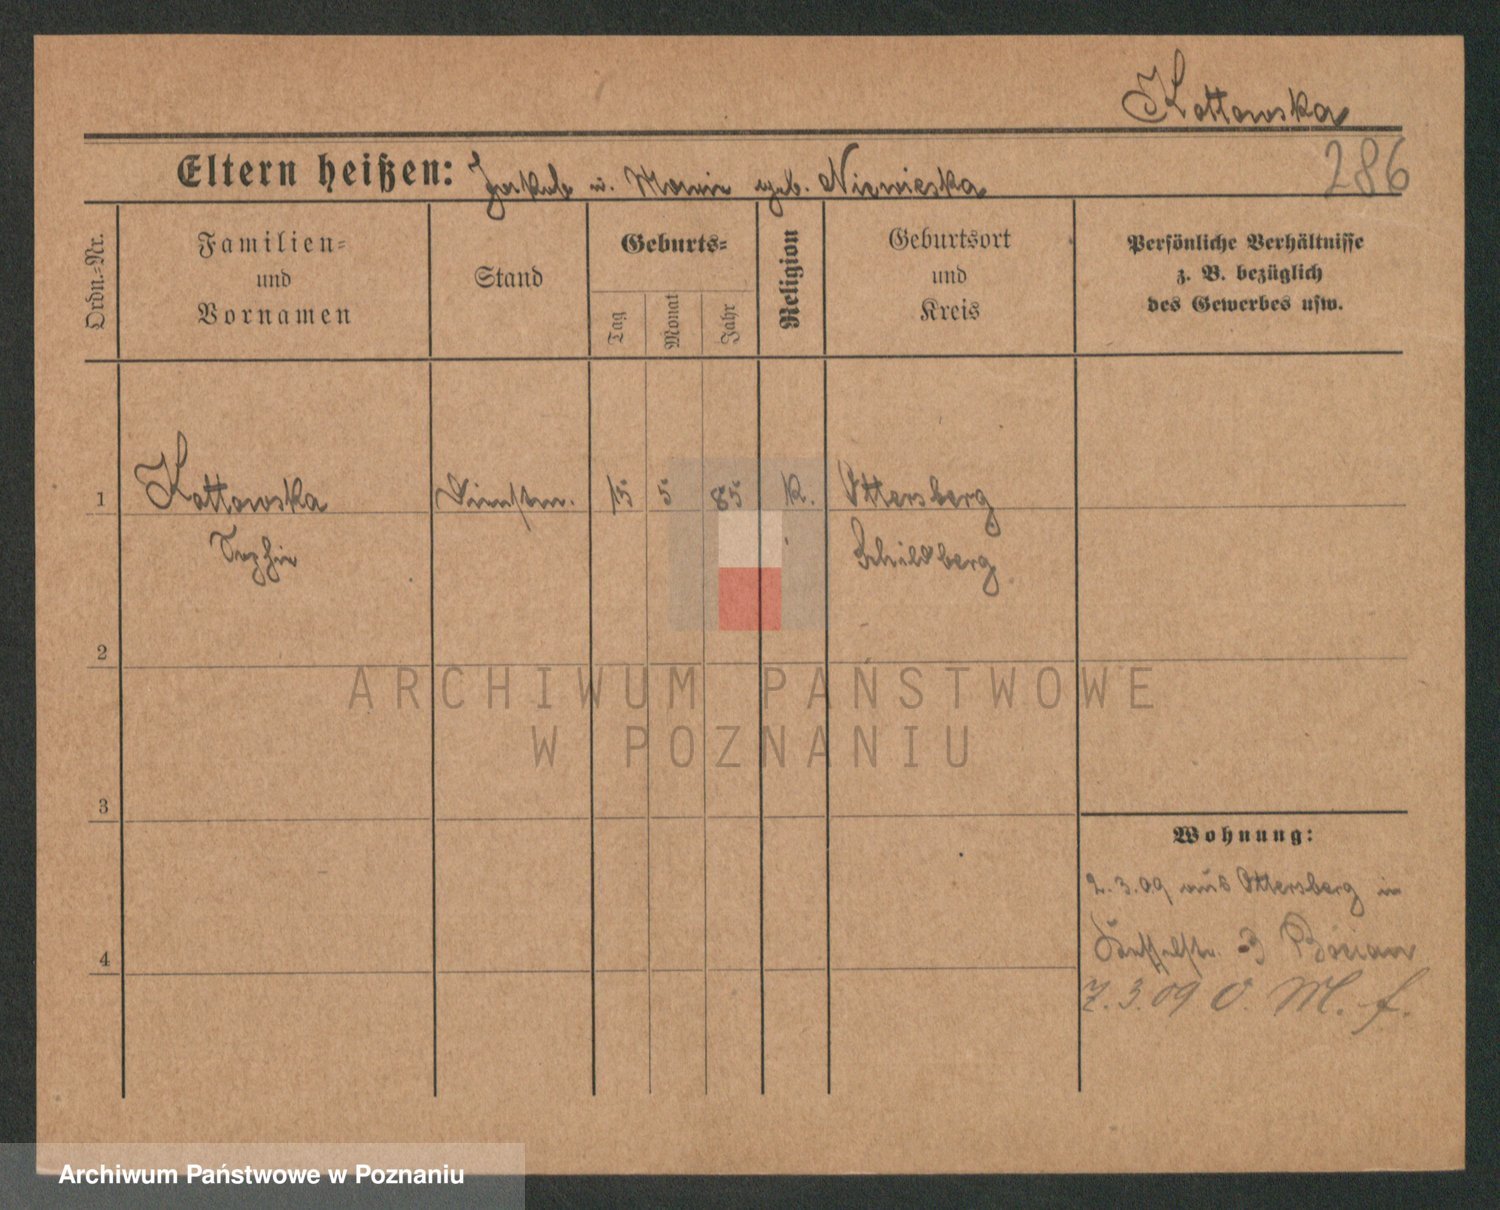 Kottowska
286
Eltern heißen: Jakob u. Marie geb. Niewieska
Ordn.-Nr.
Familien-
und
Vornamen
Stand
Geburts-
Tag
Monat
Jahr
Religion
Geburtsort
und
Kreis
Persönliche Verhältnisse
z. B. bezüglich
des Gewerbes usw.
1 Kottowska Dienstm. 15 5 85 K. Ottersberg
Sophie Schildberg
2
3
4
Wohnung:
2.3.09 aus Ottersberg in
3 Bocian
7.3.09 O. M. f.
ARCHIWUM PAŃSTWOWE
W POZNANIU
Archiwum Państwowe w Poznaniu